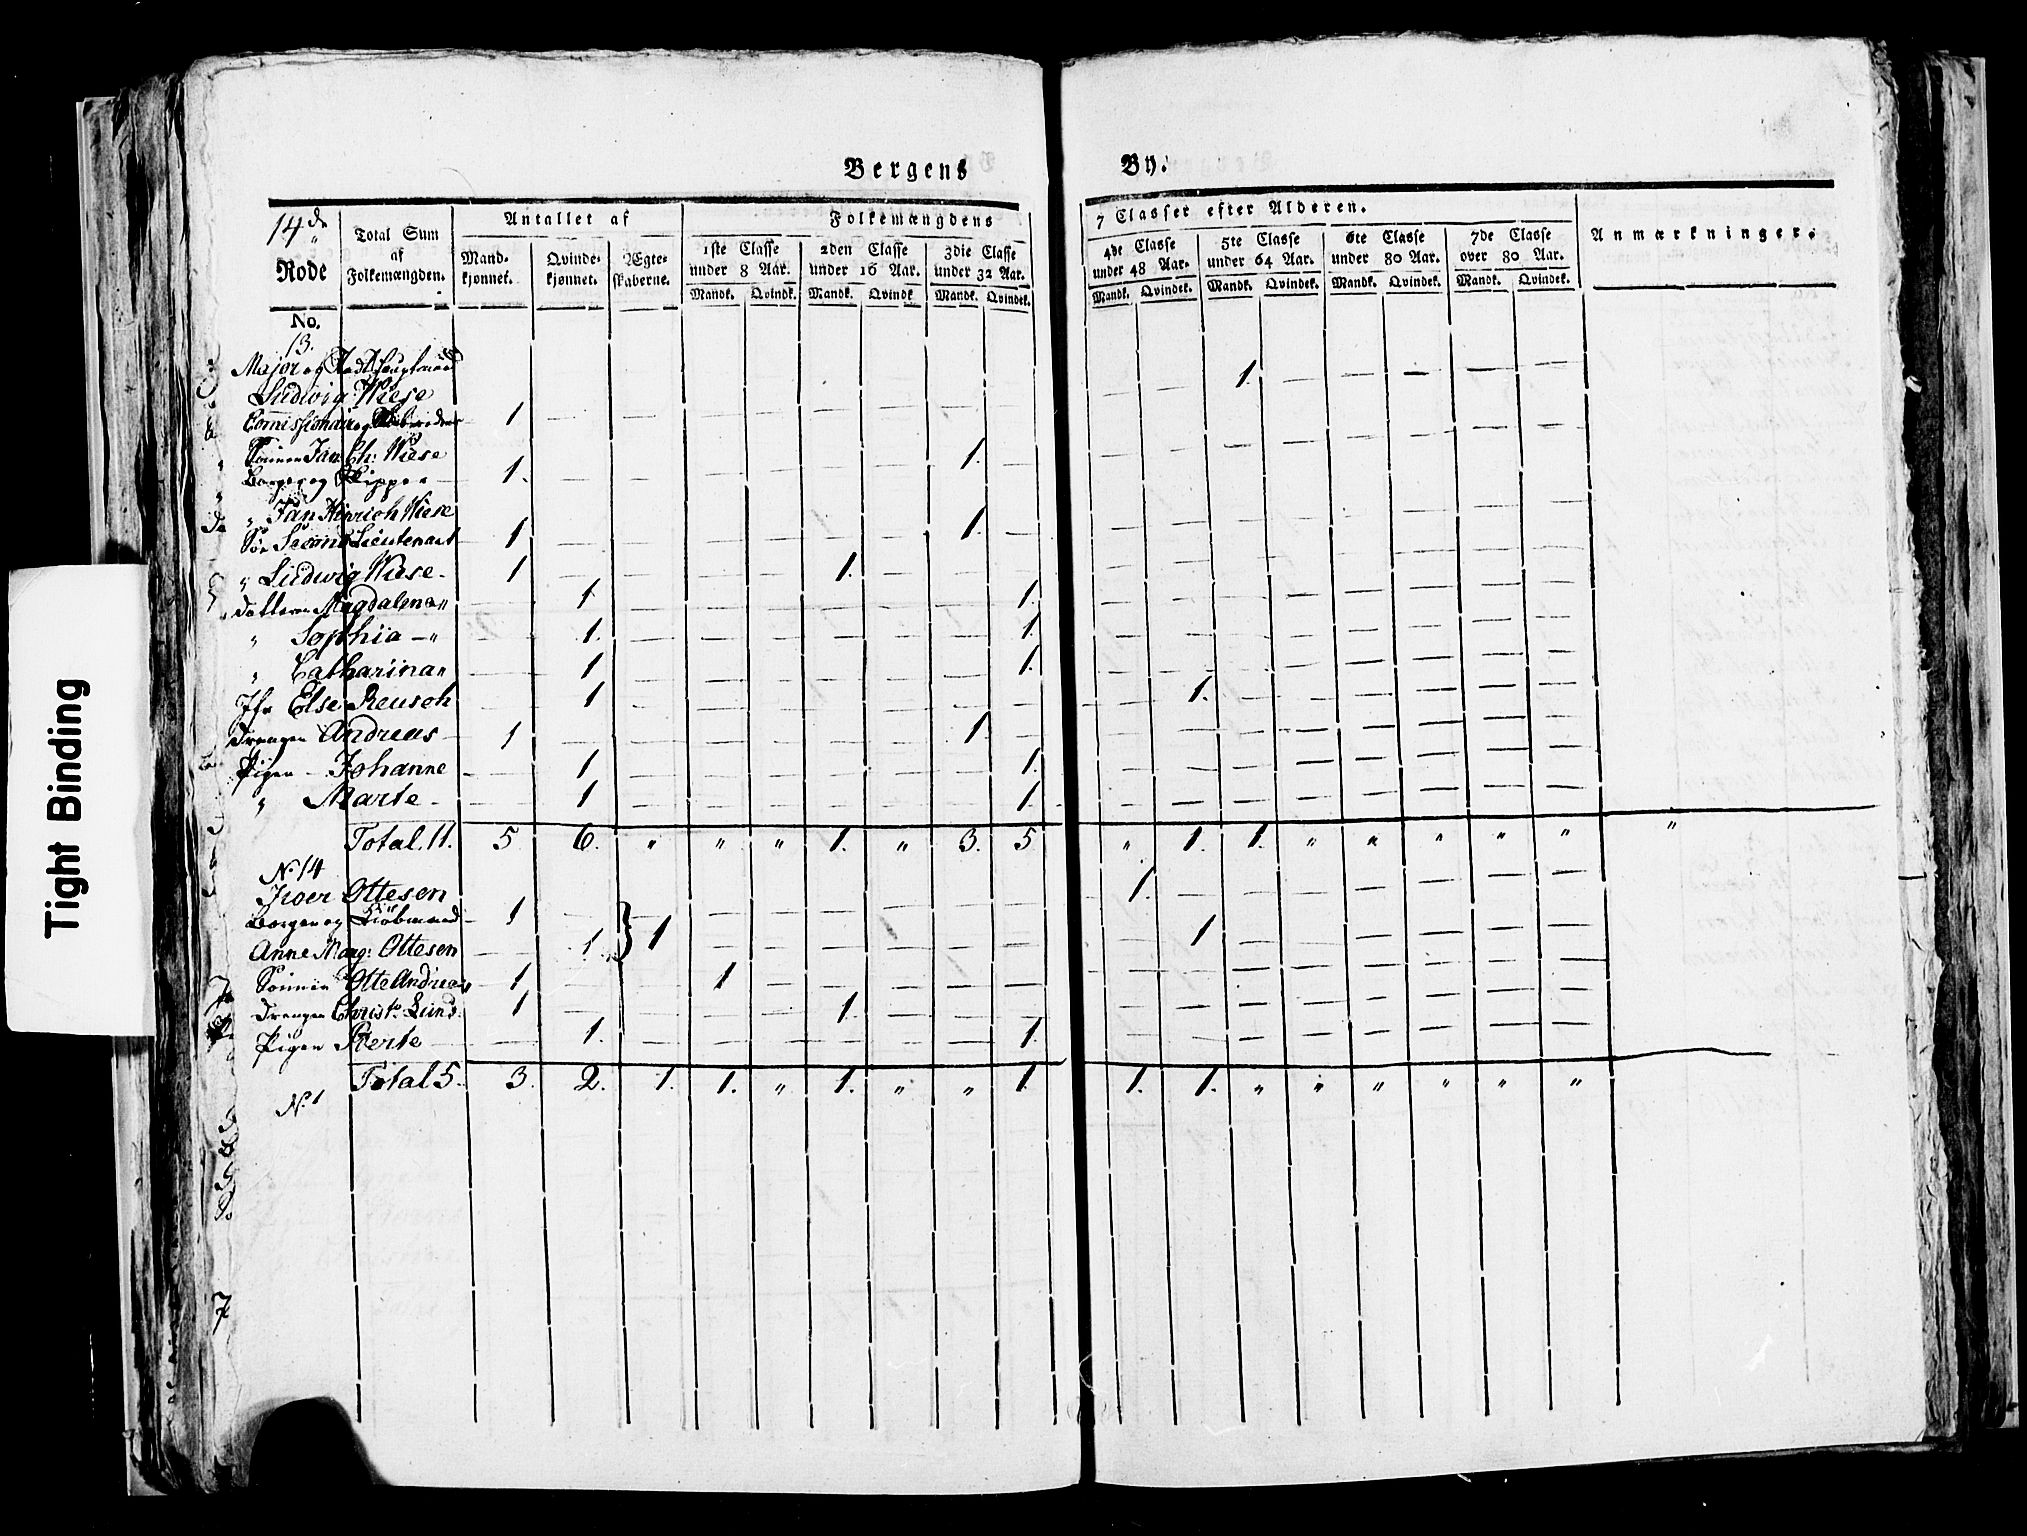 Bergens By.
14de Rode
Total Sum af Folkemængden.
Antallet af
Mandkjønnet. Qvindekjønnet. Ægteskaberne.
Folkemængdens 7 Classer efter Alderen.
1ste Classe under 8 Aar. 2den Classe under 16 Aar. 3die Classe under 32 Aar. 4de Classe under 48 Aar. 5te Classe under 64 Aar. 6te Classe under 80 Aar. 7de Classe over 80 Aar.
Mandk. Qvindek. Mandk. Qvindek. Mandk. Qvindek. Mandk. Qvindek. Mandk. Qvindek. Mandk. Qvindek. Mandk. Qvindek.
Anmærkninger.
No.
13.
Major og
Ludvig Wiese 1 — — — — — — — — — — 1. — — — — —
Sønnen Jan Ch: Wiese
Borger og Skipper 1. — — — — — — 1. — — — — — — — — —
" Jan Hinrich Wiese
Søn Second Lieutenant 1 — — — — — — 1. — — — — — — — — —
" Ludwig Wiese 1 — — — — 1. — — — — — — — — — — —
Datteren Magdalena " — 1. — — — — — — 1. — — — — — — — —
" Sophia — " — 1. — — — — — — 1. — — — — — — — —
" Catharina " — 1. — — — — — — 1. — — — — — — — —
Jfr Else Reusch — 1. — — — — — — — — 1. — — — — — —
Drengen Andreas 1 — — — — — — 1 — — — — — — — — —
Pigen Johanne — 1. — — — — — — 1. — — — — — — — —
" Marte — 1. — — — — — — 1. — — — — — — — —
Total. 11. 5 6. " " " 1. " 3. 5 " 1. 1. " " " " " "
No 14
Iver Ottesen
Borger og Kiøbmand 1 — } 1 — — — — — — 1. — — — — — — —
Anne Marg: Ottesen — 1. — — — — — — — 1 — — — — — —
Sønnen Otte Andreas 1 — — 1 — — — — — — — — — — — — —
Drengen Christo. Lund 1 — — — — 1. — — — — — — — — — — —
Pigen Berte — 1. — — — — — — 1. — — — — — — — —
Total 5. 3. 2. 1. 1. " 1. " " 1. 1. 1. " " " " " "
No 1
Tight Binding